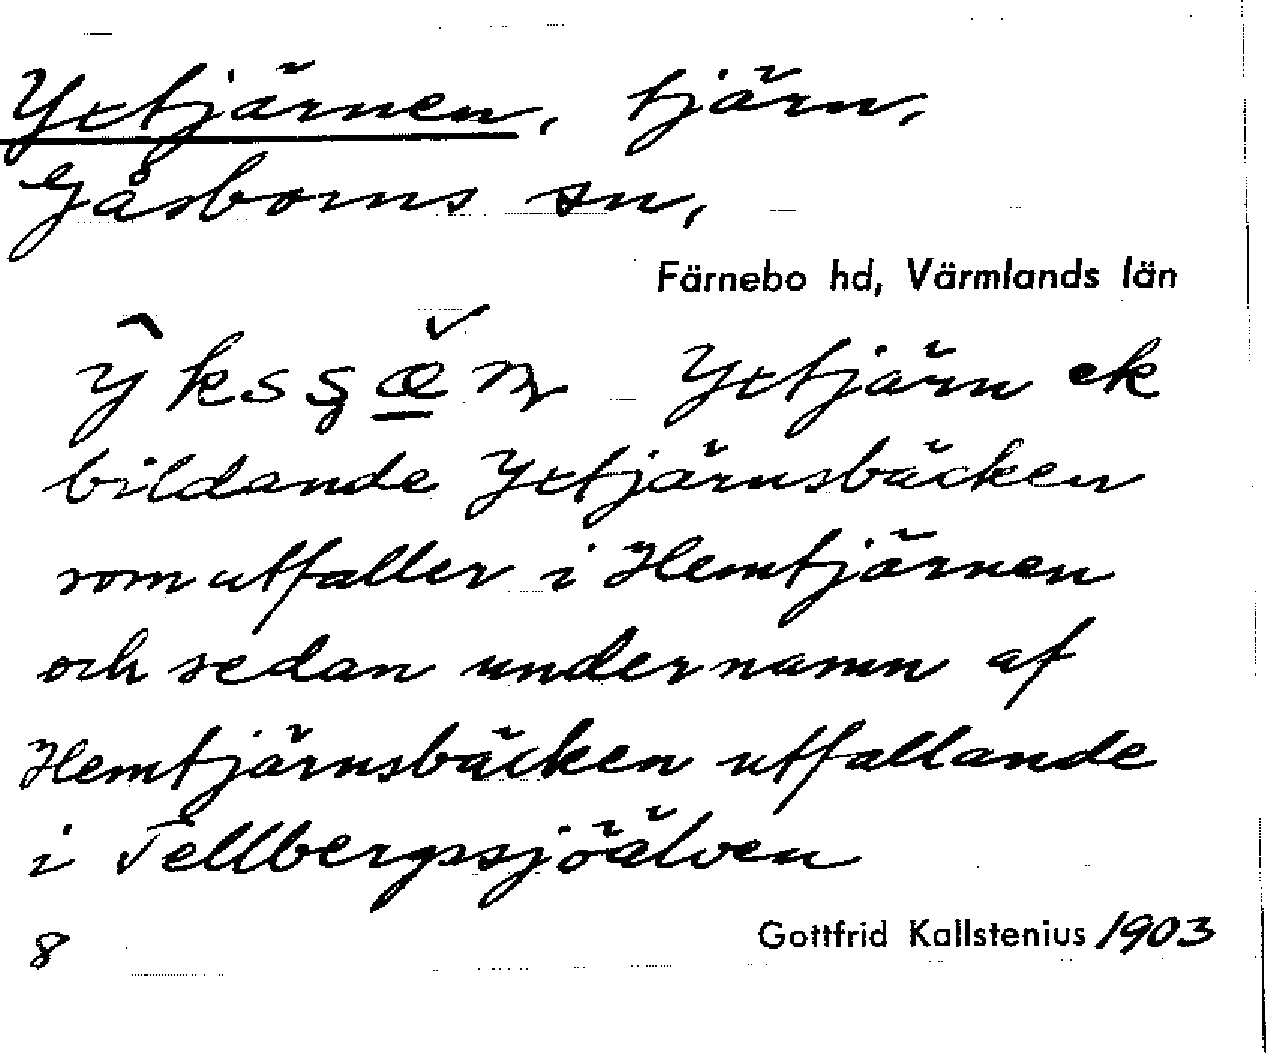 Yxtjärnen, tjärn,
Gåsborns sn,
Färnebo hd, Värmlands län
Yxtjärn ek
bildande Yxtjärnsbäcken
som utfaller i Hemtjärnen
och sedan under namn af
Hemtjärnsbäcken utfallande
i Tellbergssjöälven
8
Gottfrid Kallstenius 1903